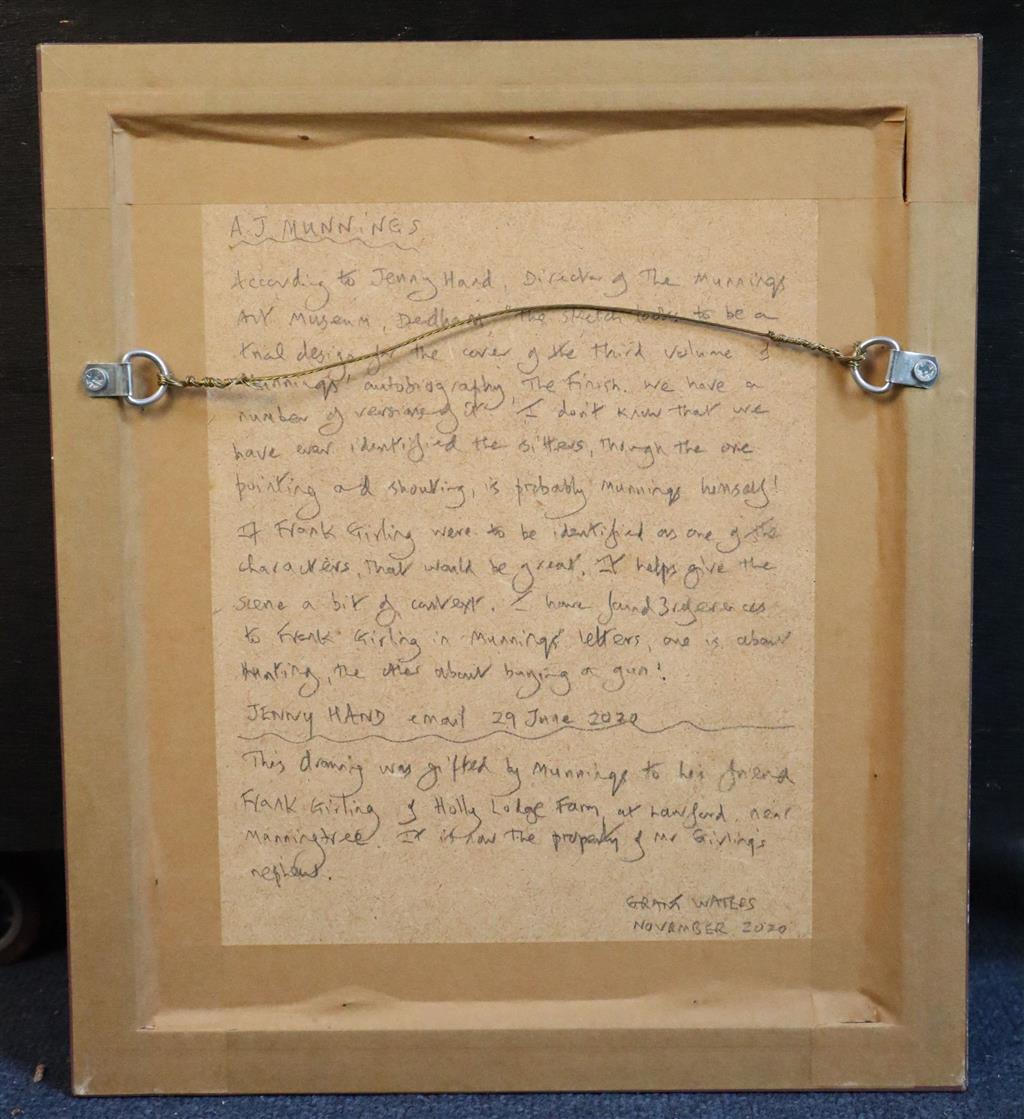 A.J MUNNINGS
According to Jenny Hand, Director of The Munnings
Art Museum, Dedham, "The sketch looks to be a
trial design for the cover of the third volume of
Munnings' autobiography, The Finish. We have a
number of versions of it. I don't know that we
have ever identified the sitters, though the one
pointing and shouting, is probably Munnings himself!
If Frank Girling were to be identified as one of the
characters, that would be great. It helps give the
scene a bit of context. I have found 3 references
to Frank Girling in Munnings' letters, one is about
Hunting, the other about buying a gun!
JENNY HAND email 29 June 2020
This drawing was gifted by Munnings to his friend
Frank Girling of Holly Lodge Farm, at Lawford, near
Manningtree. It is now the property of Mr Girling's
nephew.
GRANT WATERS
NOVEMBER 2020